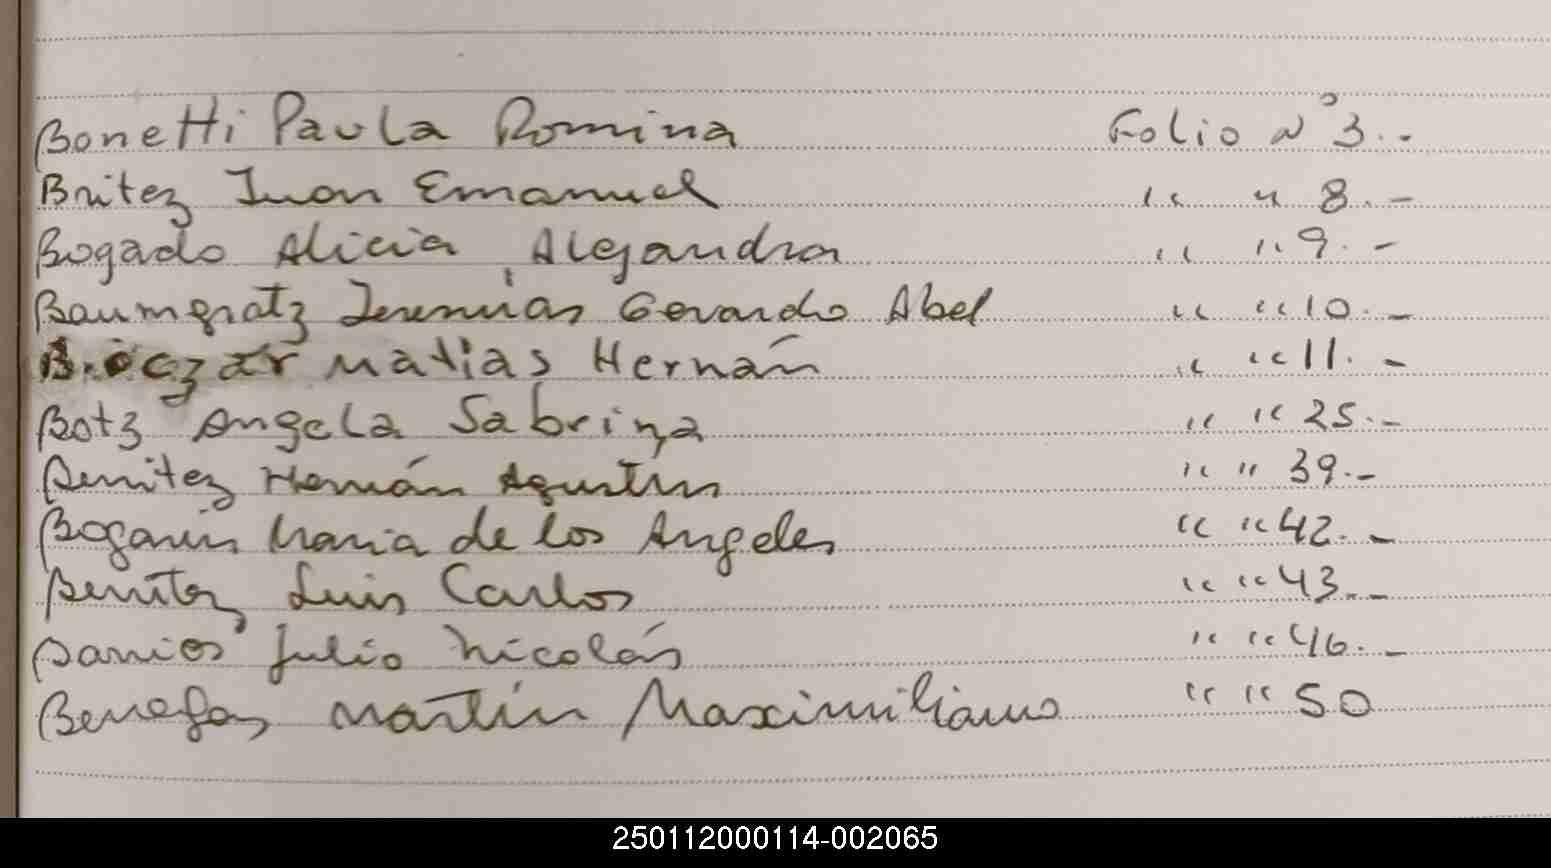 Bonetti Paula Romina Folio N° 3.-
Britez Juan Emanuel " " 8.-
Bogado Alicia Alejandra " " 9.-
Baumgratz Jeremias Gerardo Abel " " 10.-
Matias Hernán " " 11.-
Botz Angela Sabrina " " 25.-
Benitez Hernán Agustin " " 39.-
Bogarin Maria de los Angeles " " 42.-
Benitez Luis Carlos " " 43.-
Barrios Julio Nicolás " " 46.-
Benegas Martín Maximiliano " " 50
250112000114-002065